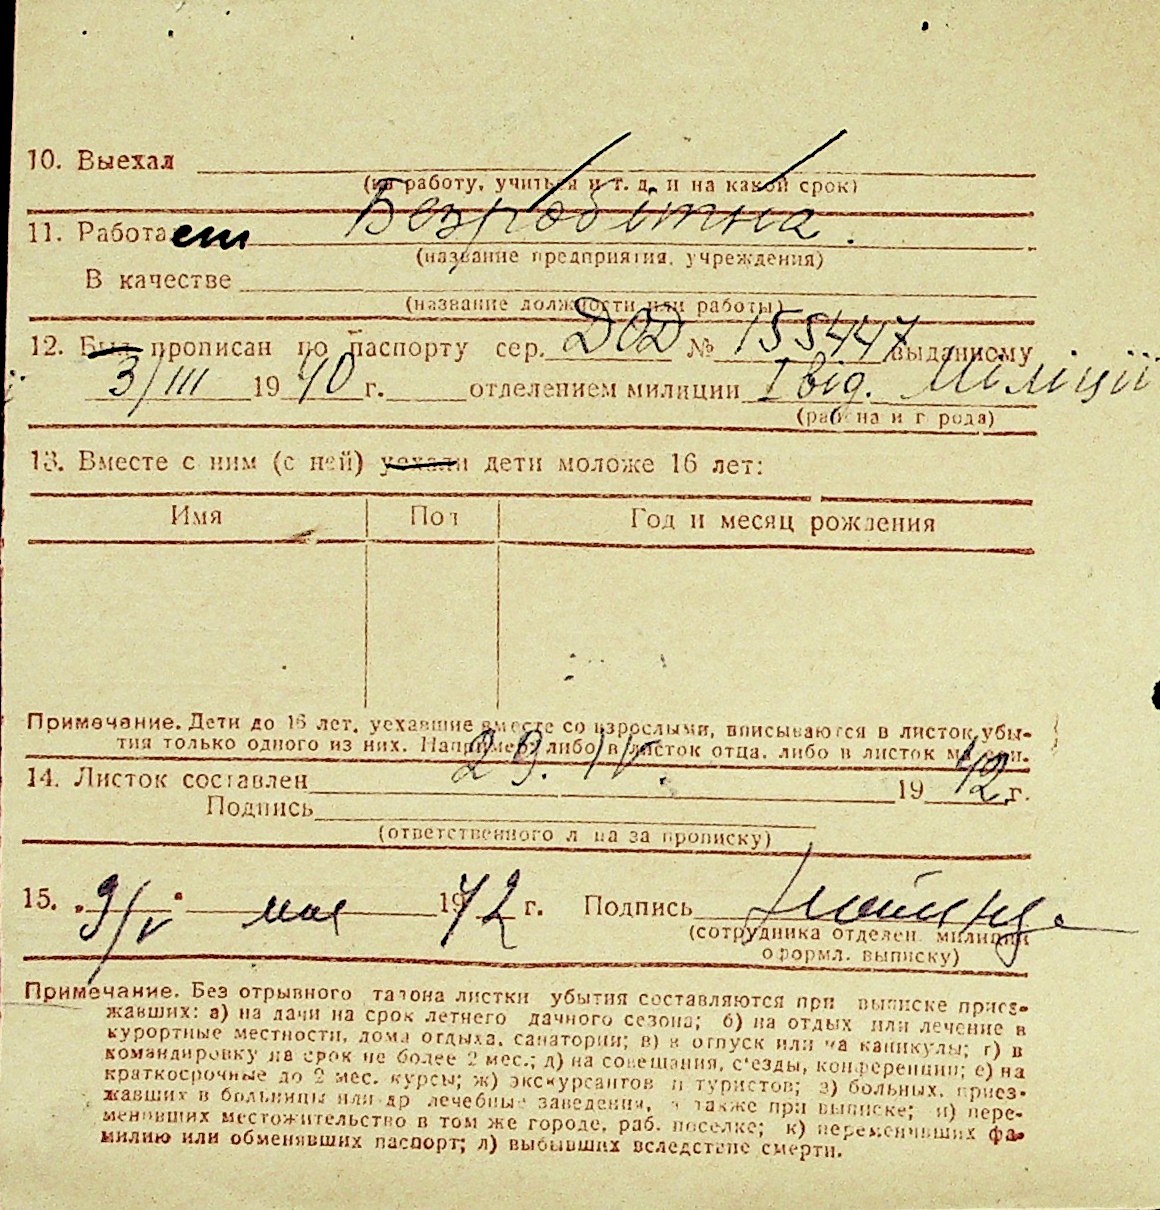 10. Выехал
(на работу, учиться и т. д. и на какой срок)
Безробітна.
11. Работает
(название предприятия, учреждения)
В качестве
(название должности или работы)
12. Был прописан по паспорту сер. ДОД № 155447 выданному
3/III 1940 г. отделением милиции I від. Міліції
(района и города)
13. Вместе с ним (с ней) уехали дети моложе 16 лет:
Имя Пол Год и месяц рождения
Примечание. Дети до 16 лет, уехавшие вместе со взрослыми, вписываются в листок убы-
тия только одного из них. Например: либо в листок отца, либо в листок матери.
14. Листок составлен 29. IV. 1942 г.
Подпись
(ответственного лица за прописку)
15. „9/V“ мая 1942 г. Подпись
(сотрудника отделен. милиции
оформл. выписку)
Примечание. Без отрывного талона листки убытия составляются при выписке приез-
жавших: а) на дачи на срок летнего дачного сезона; б) на отдых или лечение в
курортные местности, дома отдыха, санатории; в) в отпуск или на каникулы; г) в
командировку на срок не более 2 мес.; д) на совещания, с'езды, конференции; е) на
краткосрочные до 2 мес. курсы; ж) экскурсантов и туристов; з) больных, приез-
жавших в больницы или др лечебные заведения, а также при выписке; и) пере-
менивших местожительство в том же городе, раб. поселке; к) переменивших фа-
милию или обменявших паспорт; л) выбывших вследствие смерти.